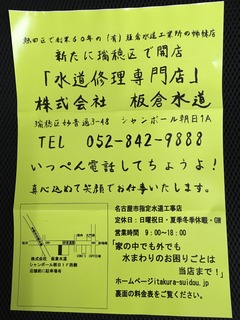 熱田区で創業60年の(有)板倉水道工業所の姉妹店
新たに瑞穂区で開店
「水道修理専門店」
株式会社 板倉水道
瑞穂区妙音通3-48 シャンボール朝日1A
TEL 052-842-9888
いっぺん電話してちょうよ!
喜べ込めて笑顔でお仕事いたします。
名古屋市指定水道工事店
定休日:日曜祝日・夏季冬季休暇・GW
営業時間 9:00~18:00
「家の中でも外でも
水まわりのお困りごとは
当店まで!」
ホームページitakura-suidou.jp
裏面の料金表をご覧ください。
株式会社 板倉水道
シャンボール朝日1F西側
店舗前に駐車場有